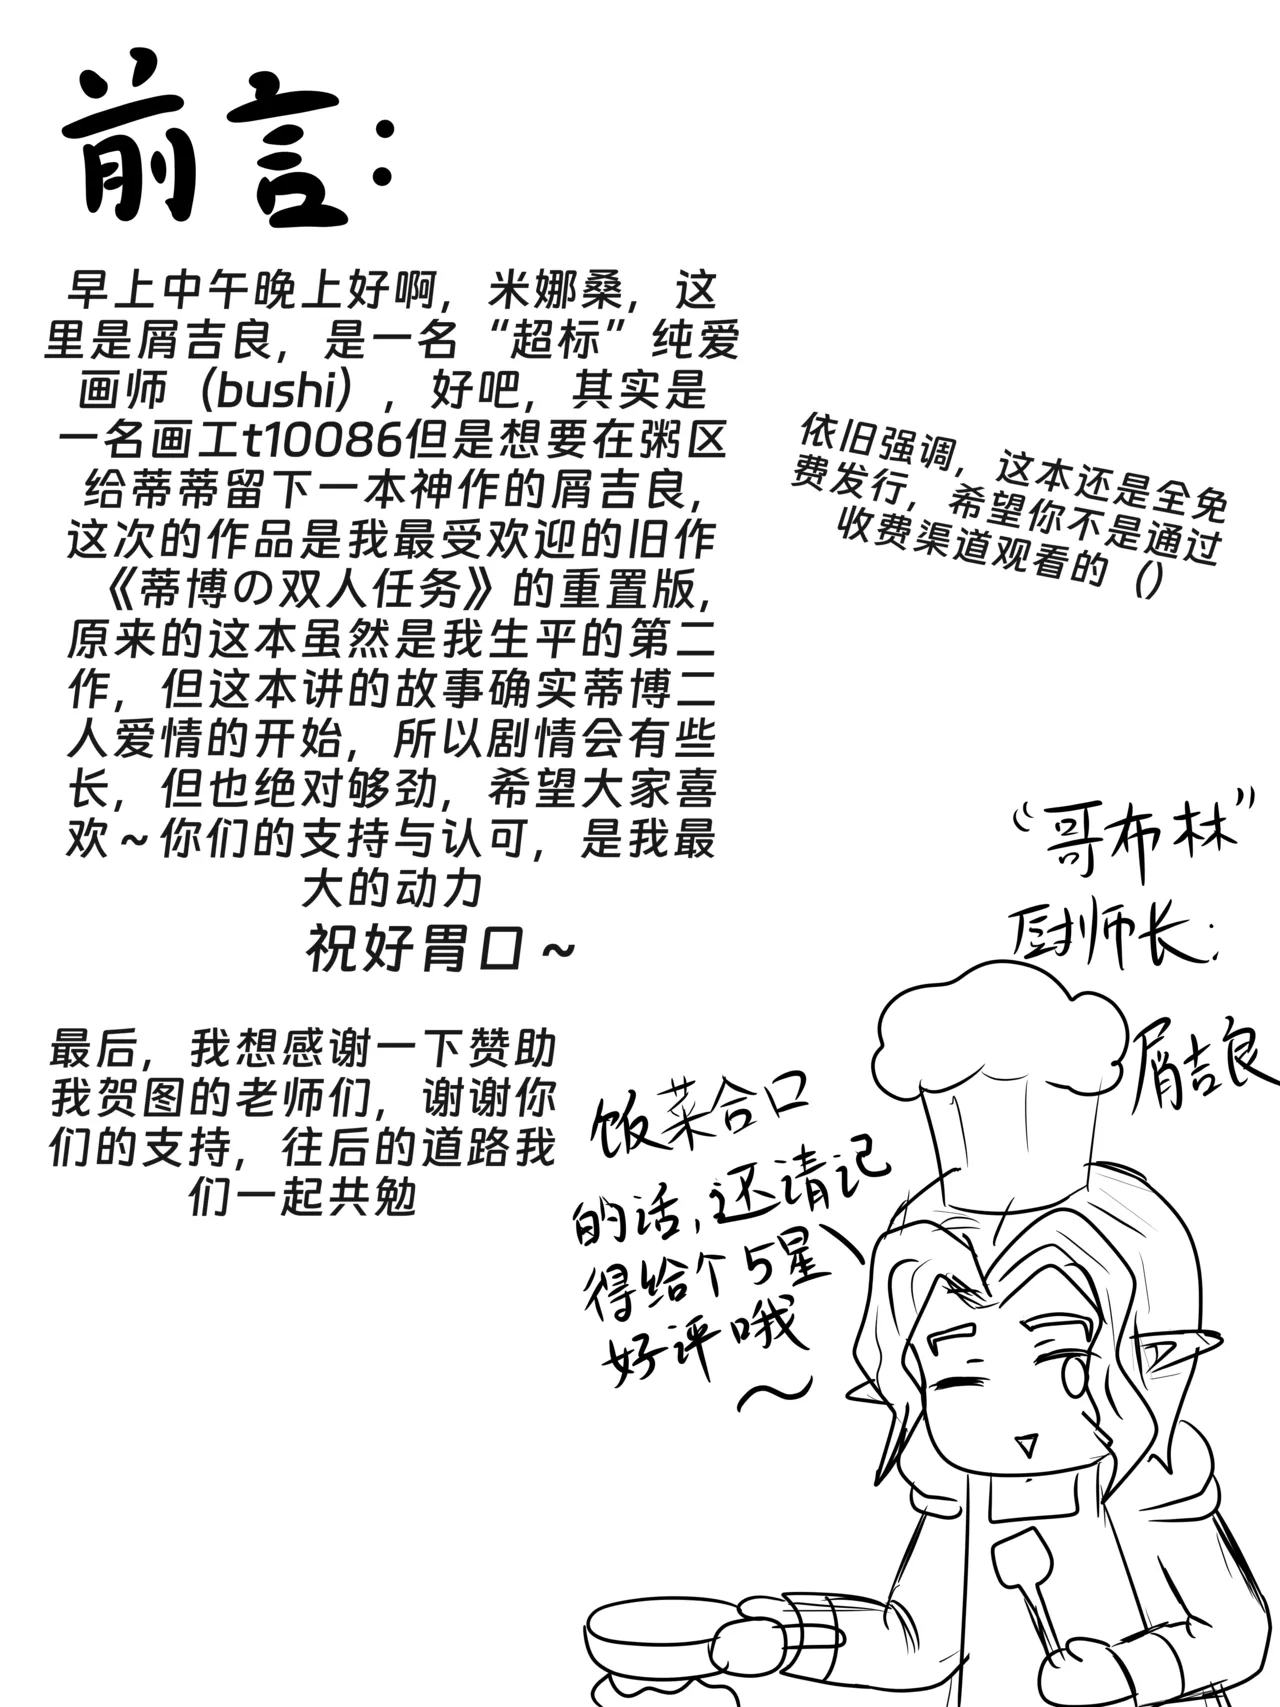 前言：
早上中午晚上好啊，米娜桑，这
里是屑吉良，是一名“超标”纯爱
画师（bushi），好吧，其实是
一名画工t10086但是想要在粥区
给蒂蒂留下一本神作的屑吉良，
这次的作品是我最受欢迎的旧作
《蒂博の双人任务》的重置版，
原来的这本虽然是我生平的第二
作，但这本讲的故事确实蒂博二
人爱情的开始，所以剧情会有些
长，但也绝对够劲，希望大家喜
欢～你们的支持与认可，是我最
大的动力
祝好胃口～
最后，我想感谢一下赞助
我贺图的老师们，谢谢你
们的支持，往后的道路我
们一起共勉
依旧强调，这本还是全免
费发行，希望你不是通过
收费渠道观看的（）
“哥布林”
厨师长：
屑吉良
饭菜合口
的话，还请记
得给个5星
好评哦
～